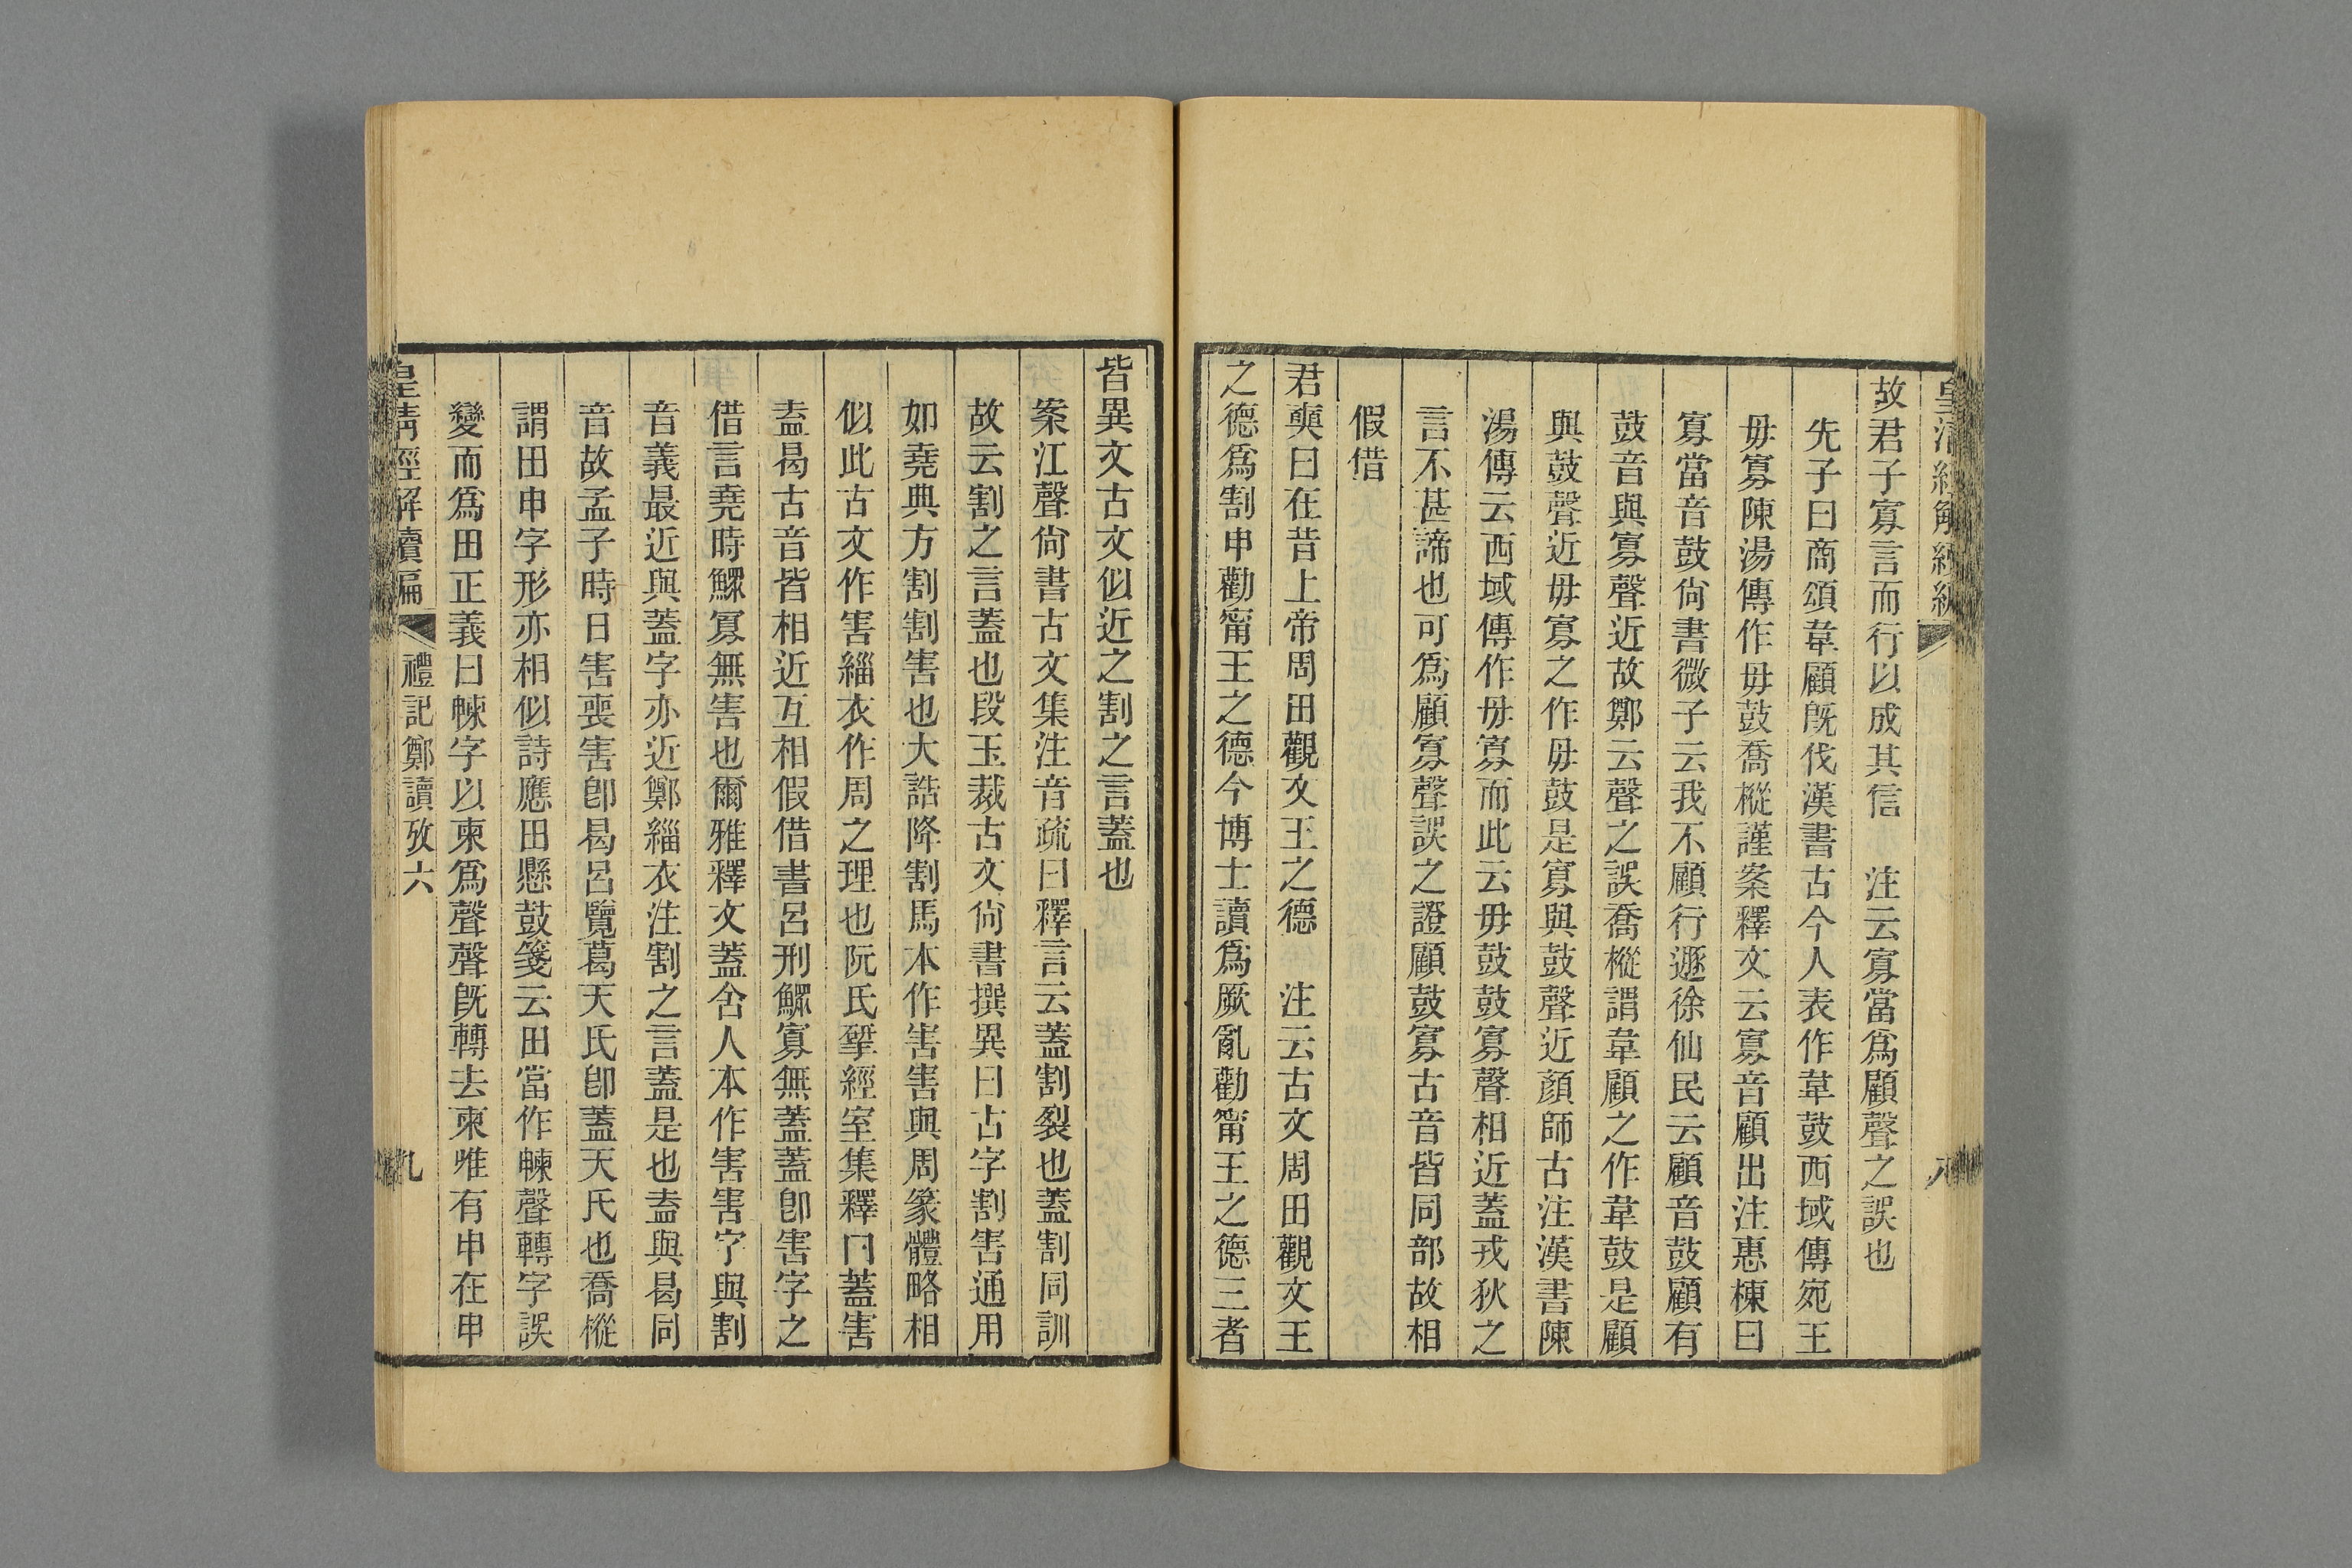 皇清經解續編 八
故君子寡言而行以成其信 注云寡當爲顧聲之誤也
先子曰商頌韋顧旣伐漢書古今人表作韋鼓西域傳宛王
毋寡陳湯傳作毋鼓喬樅謹案釋文云寡音顧出注惠棟曰
寡當音鼓尙書微子云我不顧行遯徐仙民云顧音鼓顧有
鼓音與寡聲近故鄭云聲之誤喬樅謂韋顧之作韋鼓是顧
與鼓聲近毋寡之作毋鼓是寡與鼓聲近顏師古注漢書陳
湯傳云西域傳作毋寡而此云毋鼓鼓寡聲相近蓋戎狄之
言不甚諦也可爲顧寡聲誤之證顧鼓寡古音皆同部故相
假借
君奭曰在昔上帝周田觀文王之德 注云古文周田觀文王
之德爲割申勸甯王之德今博士讀爲厥亂勸甯王之德三者
皆異文古文似近之割之言蓋也
案江聲尙書古文集注音疏曰釋言云蓋割裂也蓋割同訓
故云割之言蓋也段玉裁古文尙書撰異曰古字割害通用
如堯典方割割害也大誥降割馬本作害害與周篆體略相
似此古文作害緇衣作周之理也阮氏揅經室集釋門蓋害
盍曷古音皆相近互相假借書呂刑鰥寡無蓋蓋卽害字之
借言堯時鰥寡無害也爾雅釋文蓋舍人本作害害字與割
音義最近與蓋字亦近鄭緇衣注割之言蓋是也盍與曷同
音故孟子時日害喪害卽曷呂覽葛天氏卽蓋天氏也喬樅
謂田申字形亦相似詩應田懸鼓箋云田當作朄聲轉字誤
變而爲田正義曰朄字以柬爲聲聲旣轉去柬唯有申在申
皇清經解續編 禮記鄭讀攷六 九